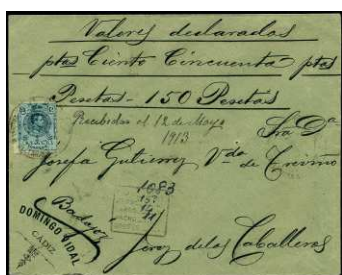 Valores declarados
ptas Ciento Cincuenta ptas
Pesetas - 150 Pesetas
Recibidas el 12 de Mayo
1913
Sra Da
Josefa Gutierrez Vda de Treviño
1083
Badajoz
DOMINGO VIDAL
CADIZ
Jerez de los Caballeros